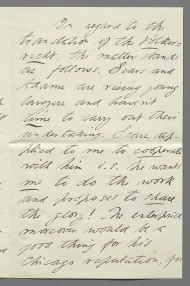 In regard to the
translation of the Kicker-
recht, the matter stands
as follows. Sears and
Adams are rising young
lawyers and haven't
time to carry out their
undertaking. Sears ap-
plied to me to cooperate
with him i.e. he wants
me to do the work
and proposes to share
the glory! The enterprise
moreover would be a
good thing for his
Chicago reputation, for